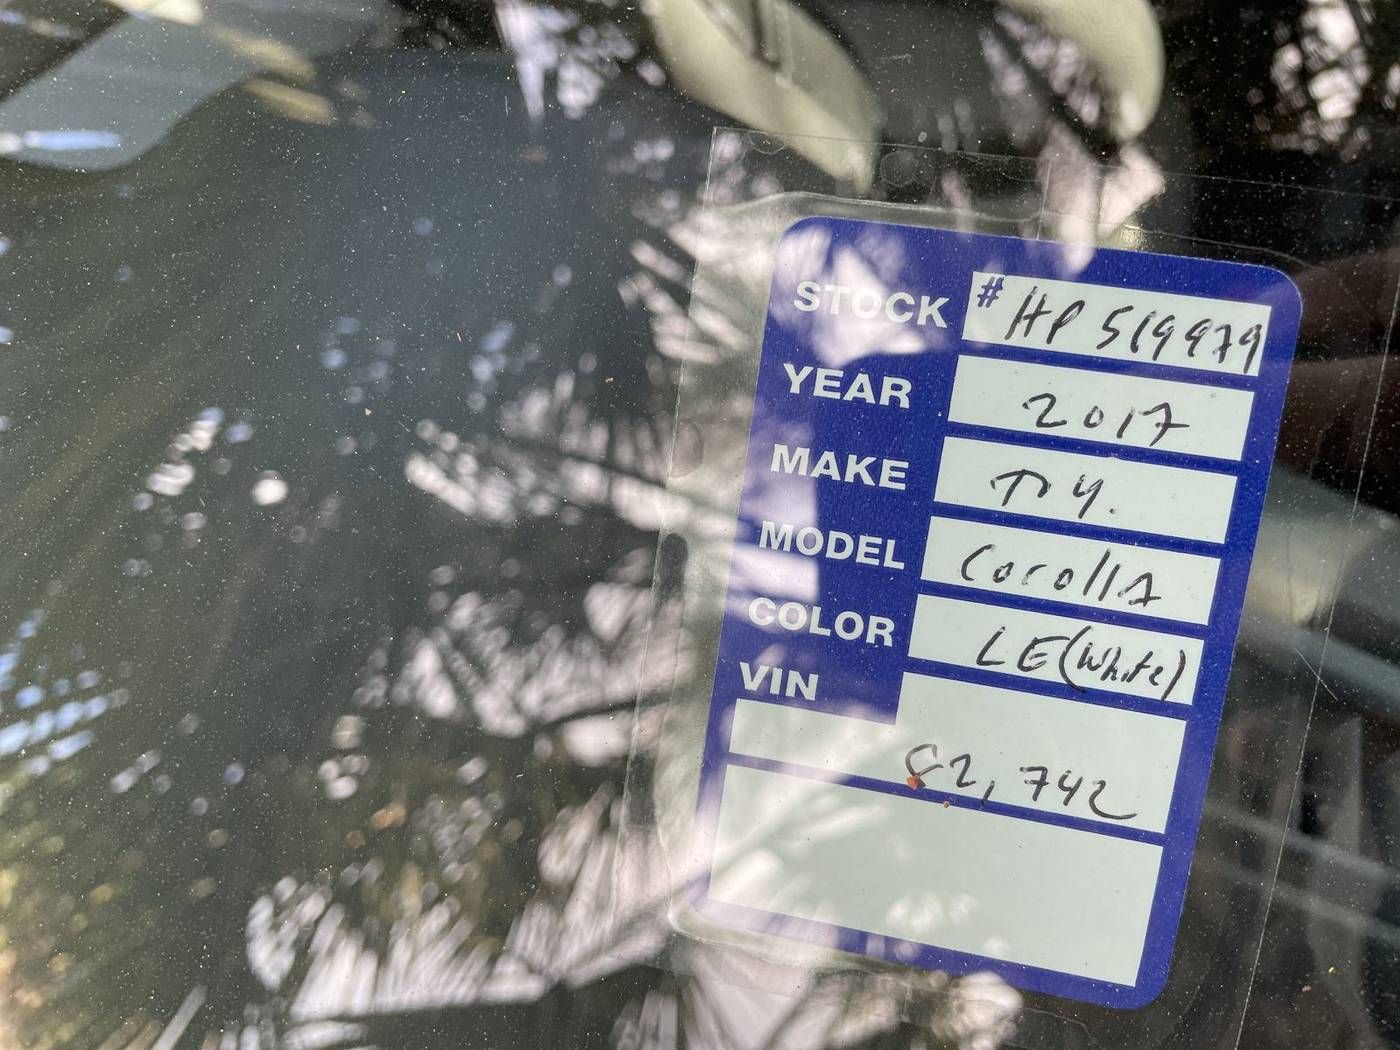 STOCK # HP 519979
YEAR 2017
MAKE TOY.
MODEL Corolla
COLOR LE (White)
VIN
82,742